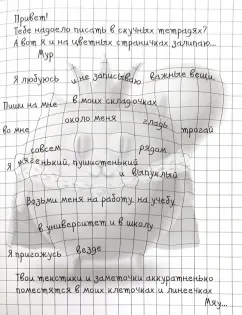 Привет!
Тебе надоело писать в скучных тетрадях?
А вот я и на цветных страничках залипаю...
Мур
Я любуюсь и не записываю важные вещи
Пиши на мне в моих складочках
около меня гладь
во мне трогай
совсем рядом
Я мягенький, пушистенький
и выпуклый
Возьми меня на работу, на учебу,
в университет и в школу
Я пригожусь везде
Твои текстики и заметочки аккуратненько
поместятся в моих клеточках и линеечках
Мяу...